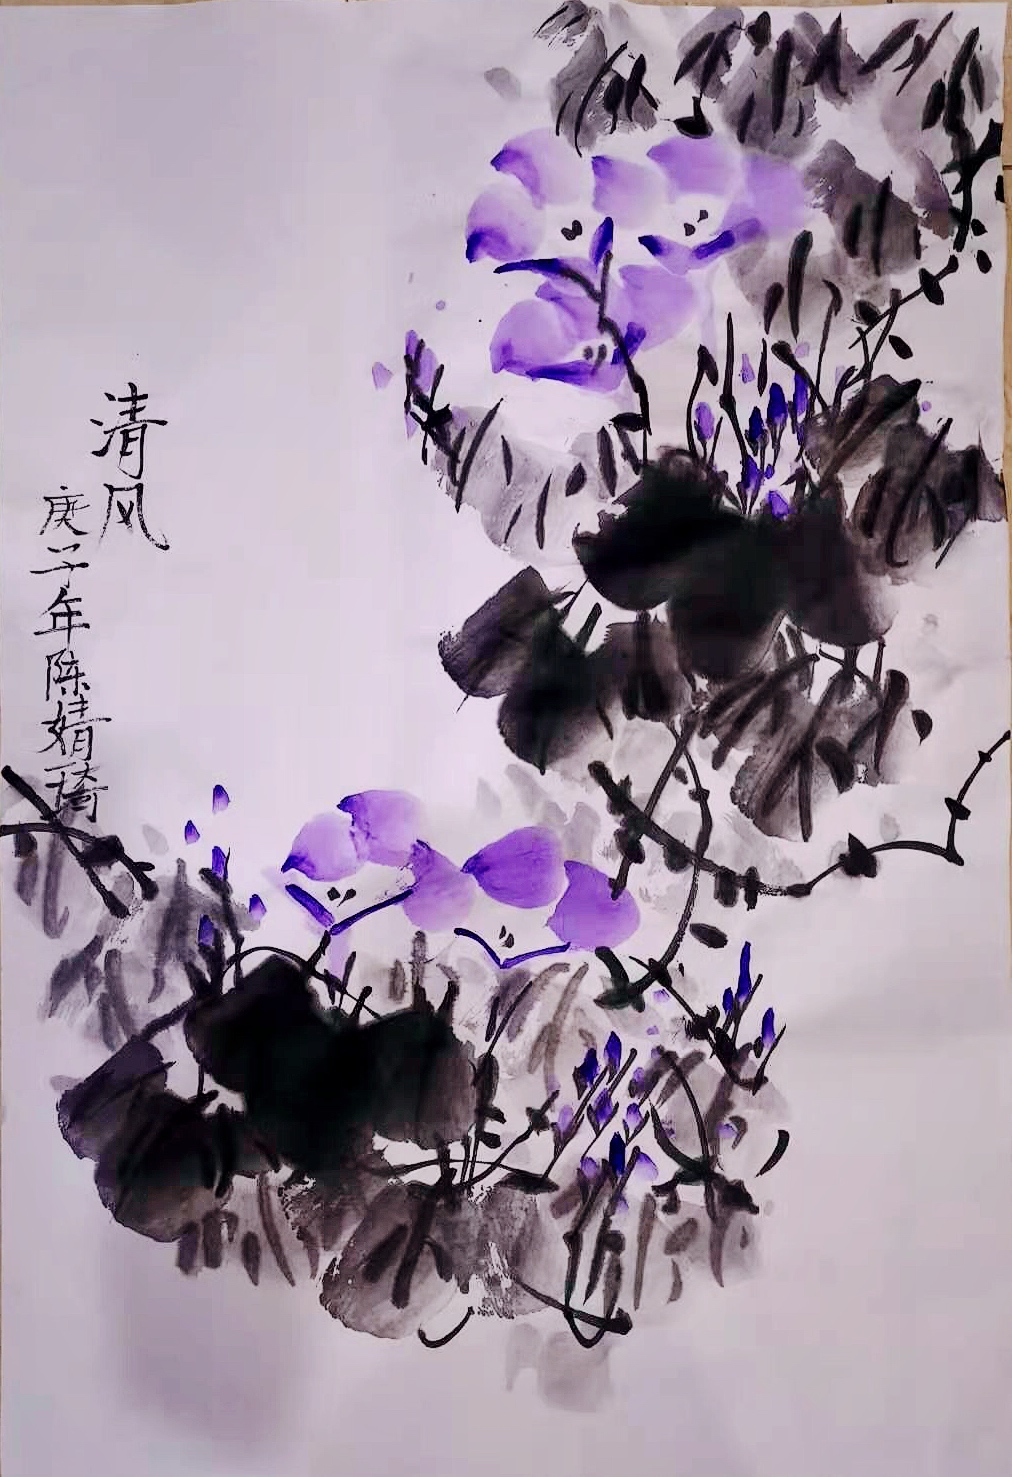 清风
庚子年陈婧琦